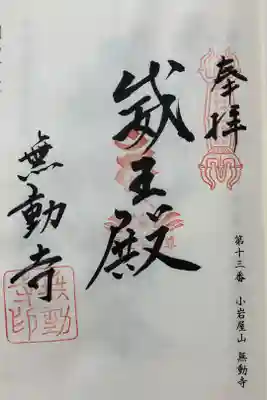 奉拝
第十三番 小岩屋山 無動寺
威王殿
無動寺
無動寺印